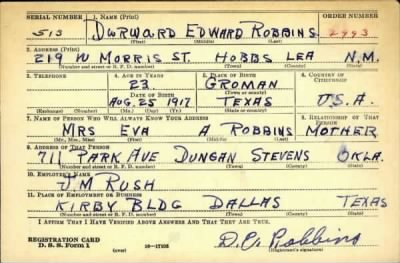 SERIAL NUMBER 1. NAME (Print) ORDER NUMBER
513 DURWARD EDWARD ROBBINS 2993
(First) (Middle) (Last)
2. ADDRESS (Print)
219 W MORRIS ST. HOBBS LEA N.M.
(Number and street or R. F. D. number) (Town) (County) (State)
3. TELEPHONE 4. AGE IN YEARS 5. PLACE OF BIRTH 6. COUNTRY OF CITIZENSHIP
23 GROMAN
DATE OF BIRTH (Town or county)
AUG. 25 1917 TEXAS U.S.A.
(Exchange) (Number) (Mo.) (Day) (Yr.) (State or country)
7. NAME OF PERSON WHO WILL ALWAYS KNOW YOUR ADDRESS 8. RELATIONSHIP OF THAT PERSON
MRS EVA A ROBBINS MOTHER
(Mr., Mrs., Miss) (First) (Middle) (Last)
9. ADDRESS OF THAT PERSON
711 PARK AVE DUNCAN STEVENS OKLA.
(Number and street or R. F. D. number) (Town) (County) (State)
10. EMPLOYER'S NAME
J.M RUSH
11. PLACE OF EMPLOYMENT OR BUSINESS
KIRBY BLDG DALLAS TEXAS
(Number and street or R. F. D. number) (Town) (County) (State)
I AFFIRM THAT I HAVE VERIFIED ABOVE ANSWERS AND THAT THEY ARE TRUE.
REGISTRATION CARD
D. S. S. Form 1 (over) 16—17105 D.E. Robbins
(Registrant's signature)